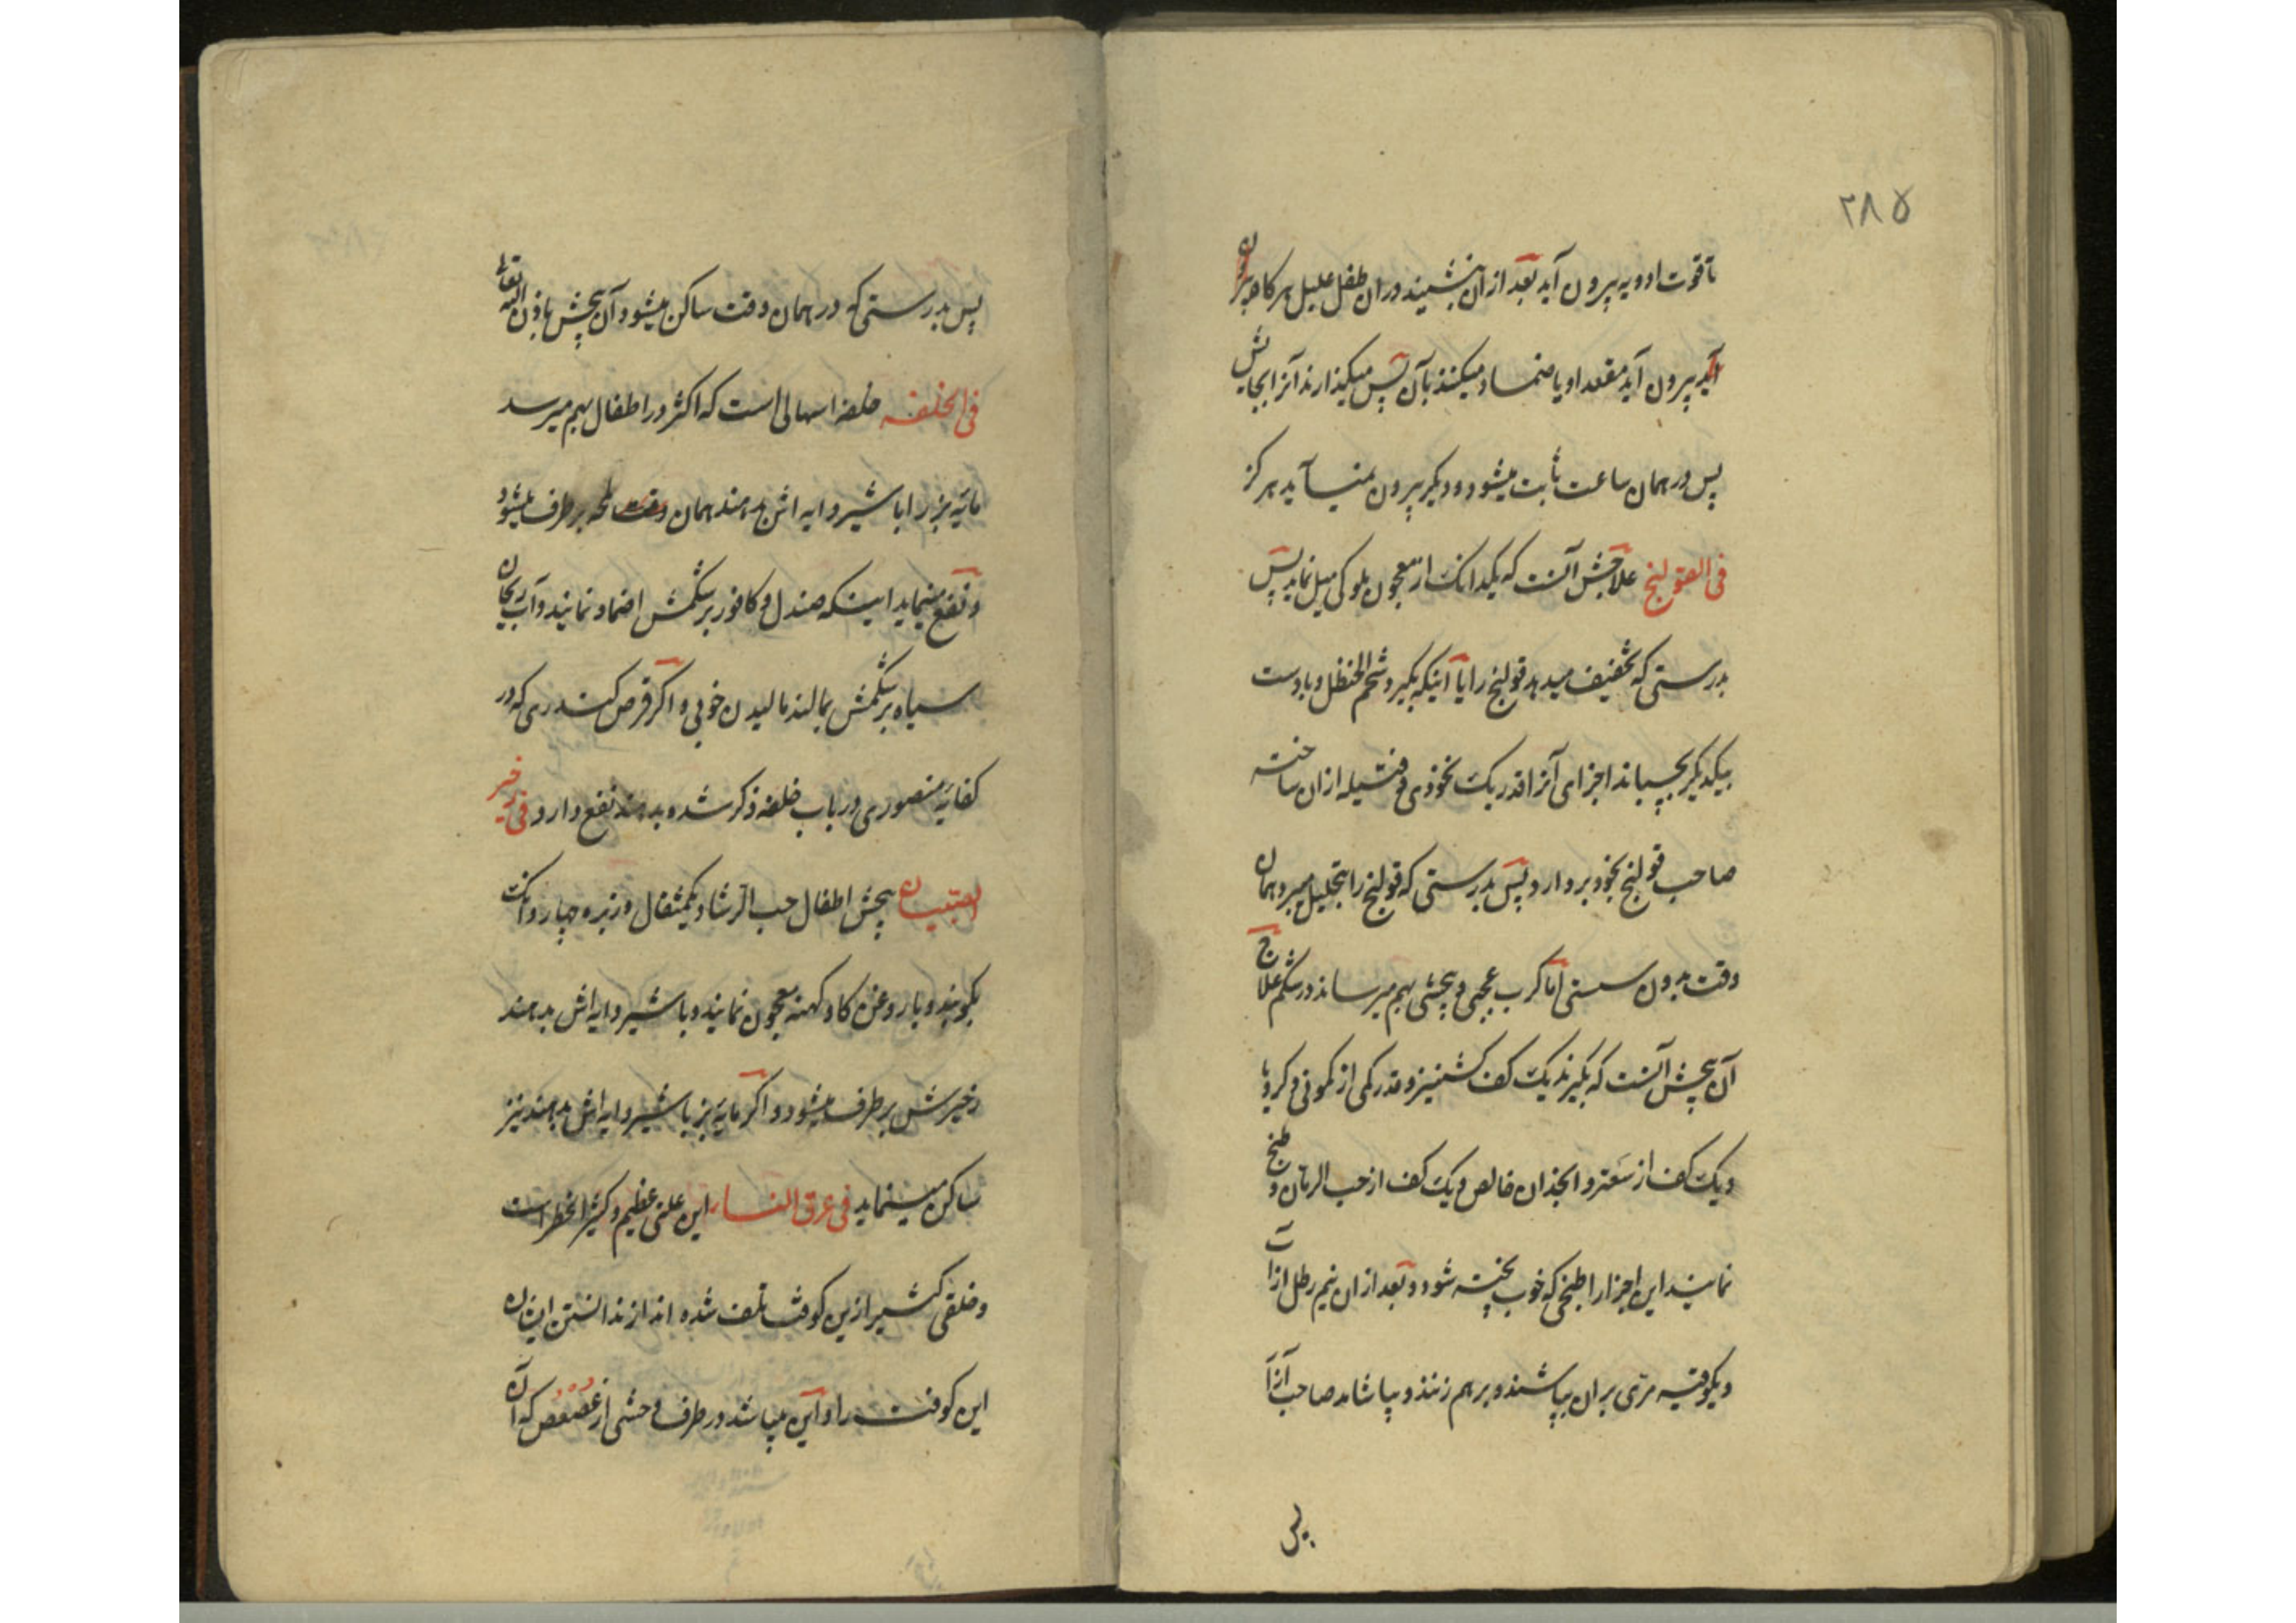 ۲۸۵
تا قوت ادویه بیرون آید بعد از ان بنشینند در ان طفل علیل هر کاه بیرون
آید بیرون آید مقعد او یا ضماد میکنند بآن پس میکذارند آنرا بجایش
پس در همان ساعت ثابت میشود و دیکر بیرون نمیآید هرکز
فی القولنج علاجش آنست که یکدانک از معجون ملوکی میل نماید پس
بدرستی که تخفیف میدهد قولنج را یا آنکه بکیرد شحم الحنظل و با دست
بیکدیکر بچسپاند اجزای آنرا قدر یک نخودی و فتیله از ان ساخته
صاحب قولنج بخود بردارد پس بدرستی که قولنج را بتحلیل میبرد همان
وقت بدون سستی اما کرب عجبی و پیچشی بهم میرساند در شکم علاج
آن پیچش آنست که بکیرند یک کف کشنیز و قدر کمی از کمونی و کرویا
و یک کف از سعتر و انجذان خالص و یک کف از حب الرمان و طبخ
نمایند این اجزا را طبخی که خوب پخته شود و بعد از ان نیم رطل از آب
و یکوقیه مری بر ان بپاشند و بر هم زنند و بیاشامد صاحب آزار
پس
پس بدرستی که در همان وقت ساکن میشود آن پیچش باذن الله تعالی
فی الخلفه خلفه اسهالی است که اکثر در اطفال بهم میرسد
مایه بز را با شیر دایه اش بدهند همان وقت لمحه بر طرف میشود
و نفع مینماید اینکه صندل و کافور بر شکمش ضماد نمایند و آب ریحان
سیاه بر شکمش بمالند مالیدن خوبی و اکر قرص کندری که در
کفایه منصوری در باب خلفه ذکر شده بدهند نفع دارد فی زحیر
الصبیان پیچش اطفال حب الرشاد یکمثقال و زیره چهار دانک
بکوبند و با روغن کاو کهنه معجون نمایند و با شیر دایه اش بدهند
زحیرش بر طرف میشود و اکر مایه بز با شیر دایه اش بدهند نیز
ساکن مینماید فی عرق النساء این علتی عظیم و کثیر الخطر است
و خلقی کثیر ازین کوفت تلف شده اند از ندانستن ایشان
این کوفت را و این میباشد در طرف وحشی از عصعص که آن